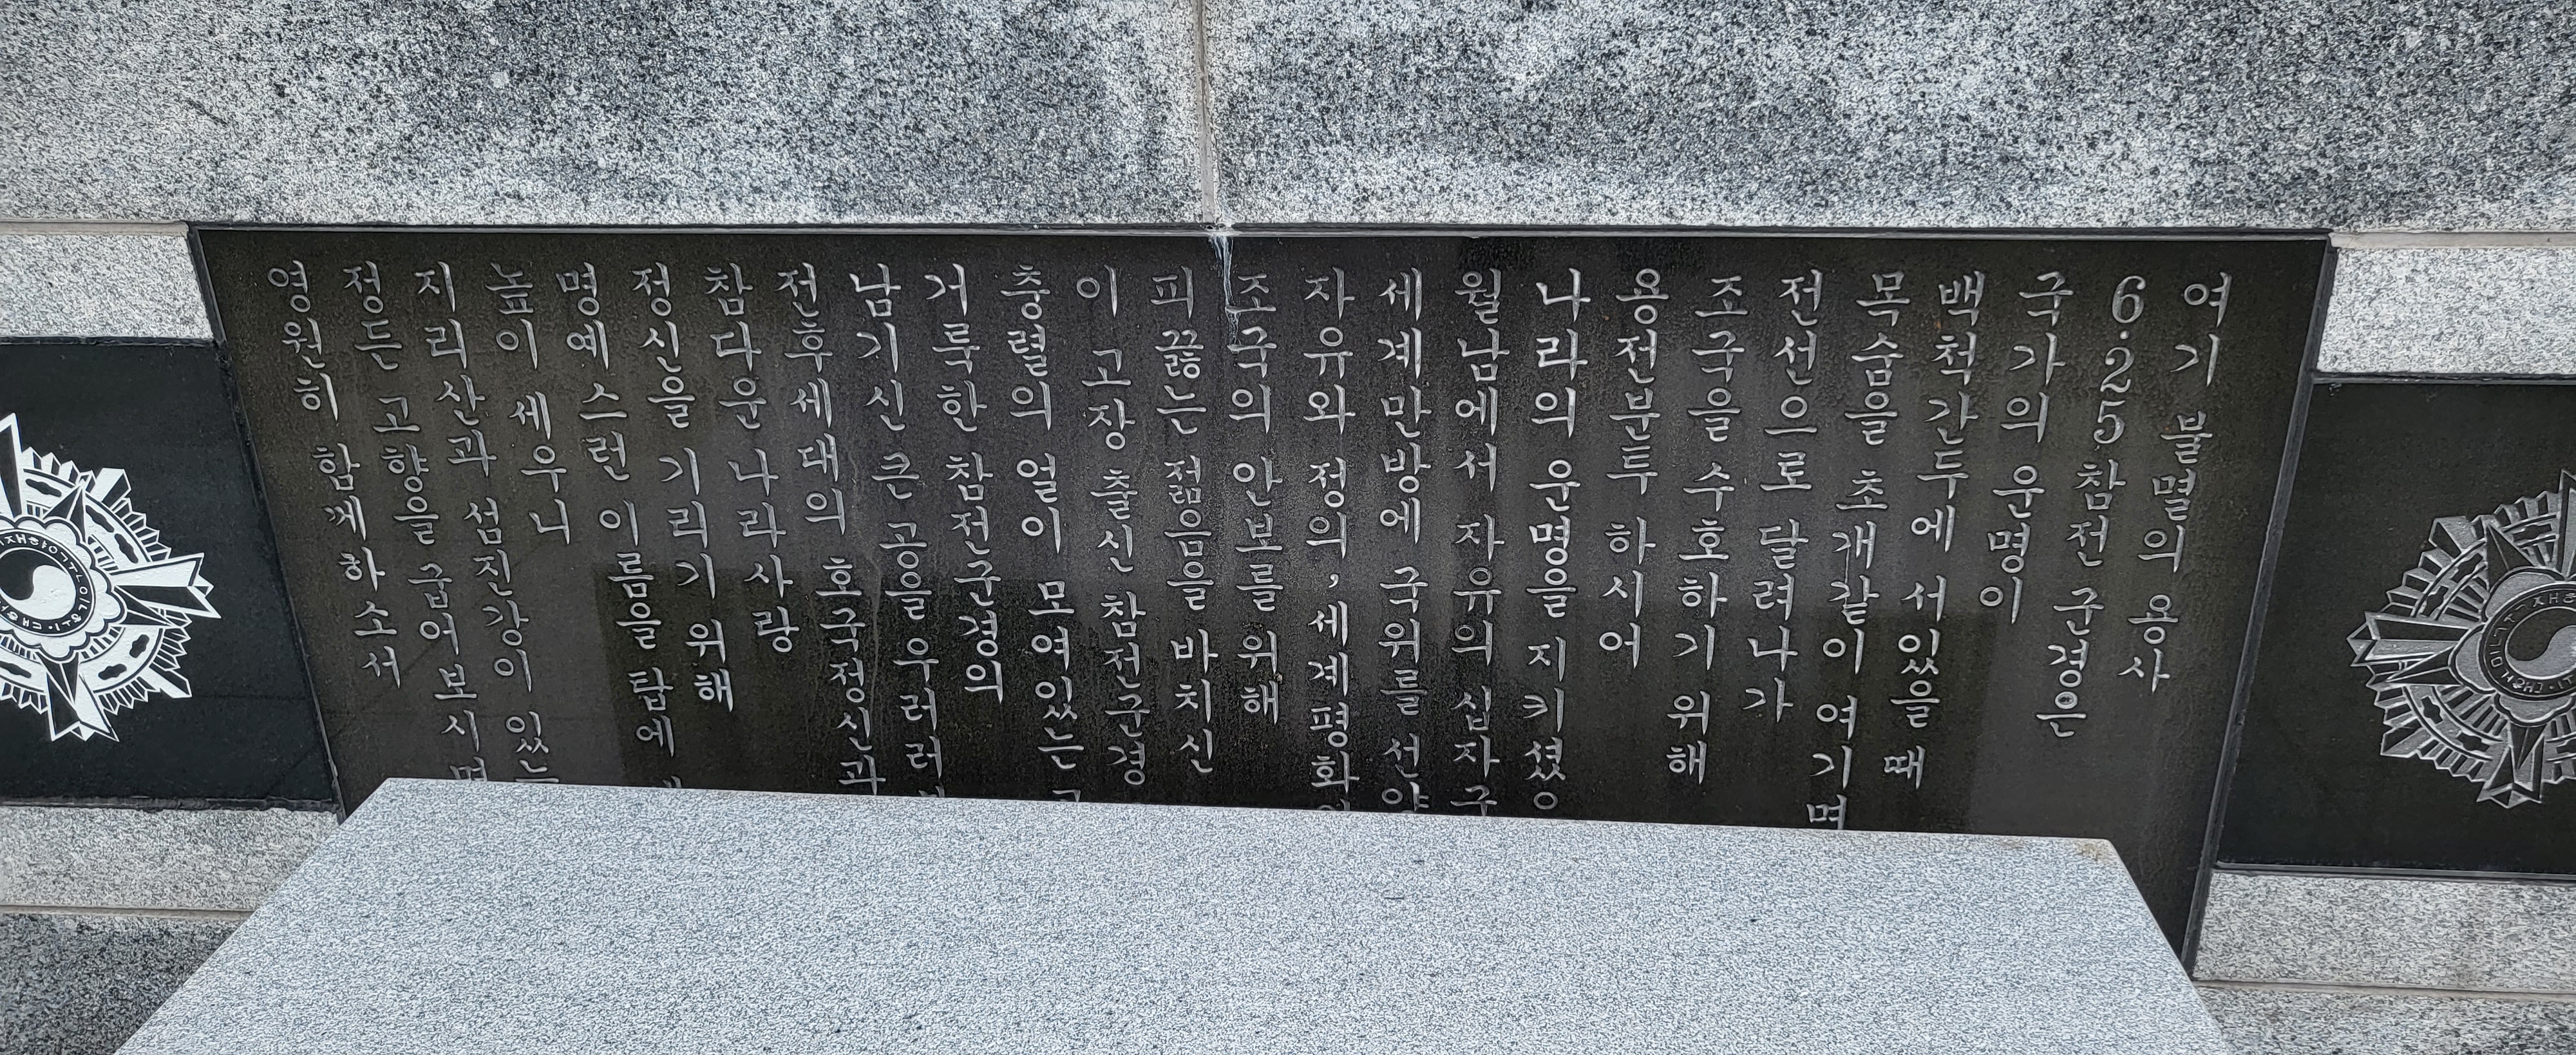 여기 불멸의 용사
6·25 참전 군경은
국가의 운명이
백척간두에 서있을 때
목숨을 초개같이 여기며
전선으로 달려나가
조국을 수호하기 위해
용전분투 하시어
나라의 운명을 지키셨
월남에서 자유의 십자군
세계만방에 국위를 선양
자유와 정의, 세계평화
조국의 안보를 위해
피 끓는 젊음을 바치신
이 고장 출신 참전군경
충렬의 얼이 모여있는
거룩한 참전군경의
남기신 큰 공을 우러러
전후세대의 호국정신과
참다운 나라사랑
정신을 기리기 위해
명예스런 이름을 탑에
높이 세우니
지리산과 섬진강이
정든 고향을 굽어 보시며
영원히 함께하소서